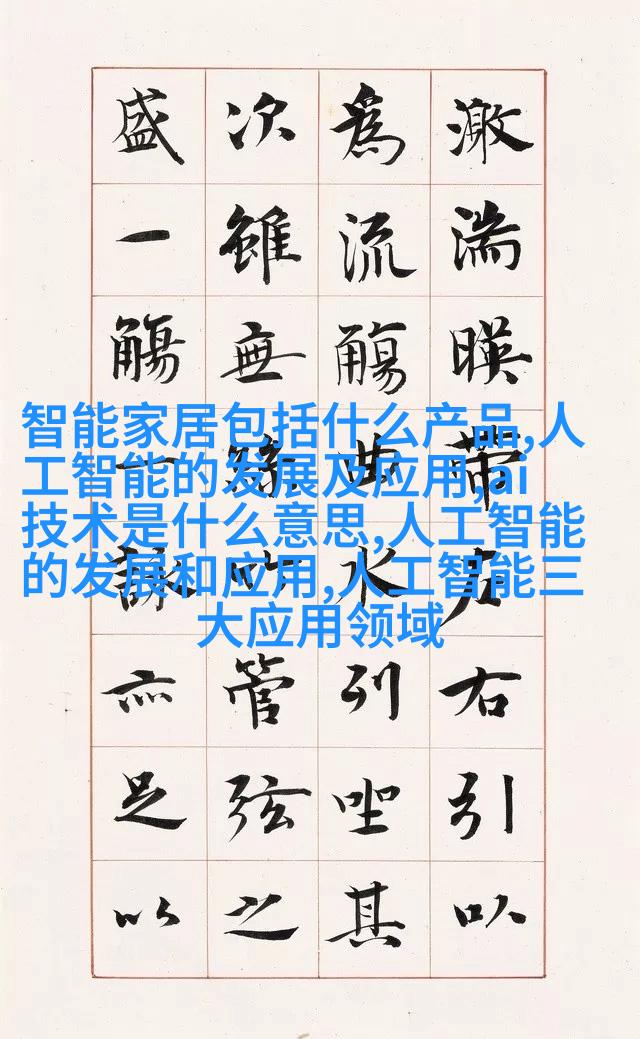 激湍暎帶左右引以
爲流觴曲水列坐其
次雖無絲竹管弦之
盛一觴一詠亦足以
智能家居包括什么产品,人
工智能的发展及应用,ai
技术是什么意思,人工智能
的发展和应用,人工智能三
大应用领域